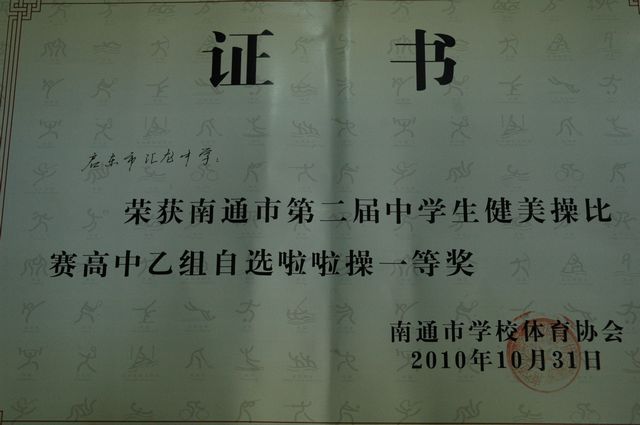 证书
启东市汇龙中学：
荣获南通市第二届中学生健美操比
赛高中乙组自选啦啦操一等奖
南通市学校体育协会
2010年10月31日